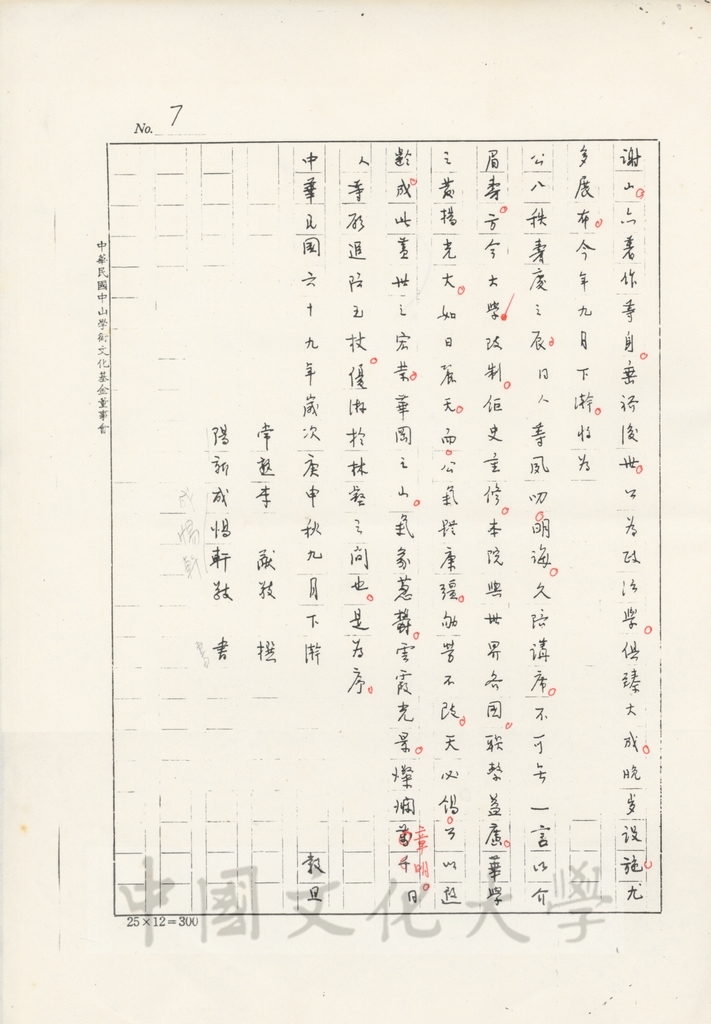 No. 7
謝山。六著作等身。垂裕後世。公為政治學。俱臻大成。晚歲設施。尤
多展布。今年九月下澣。恰為
公八秩壽慶之辰。日人等夙叨明誨。久陪講席。不可無一言以介
眉壽。方今大學改制。鉅史重修。本院與世界各國。聯繫益廣。華學
之發揚光大。如日麗天。而公氣體康彊。劬勞不改。天必錫公以遐
齡。成此蓋世之宏業。華岡之山。氣象蔥鬱。雲霞光景。燦爛章明。萬千日
人等願追陪玉杖。優游於林壑之間也。是為序。
中華民國六十九年歲次庚申秋九月下澣 穀旦
常熟李 猷敬 撰
陽新成惕軒敬 書
成惕軒 書
中華民國中山學術文化基金董事會
25×12=300
中國文化大學